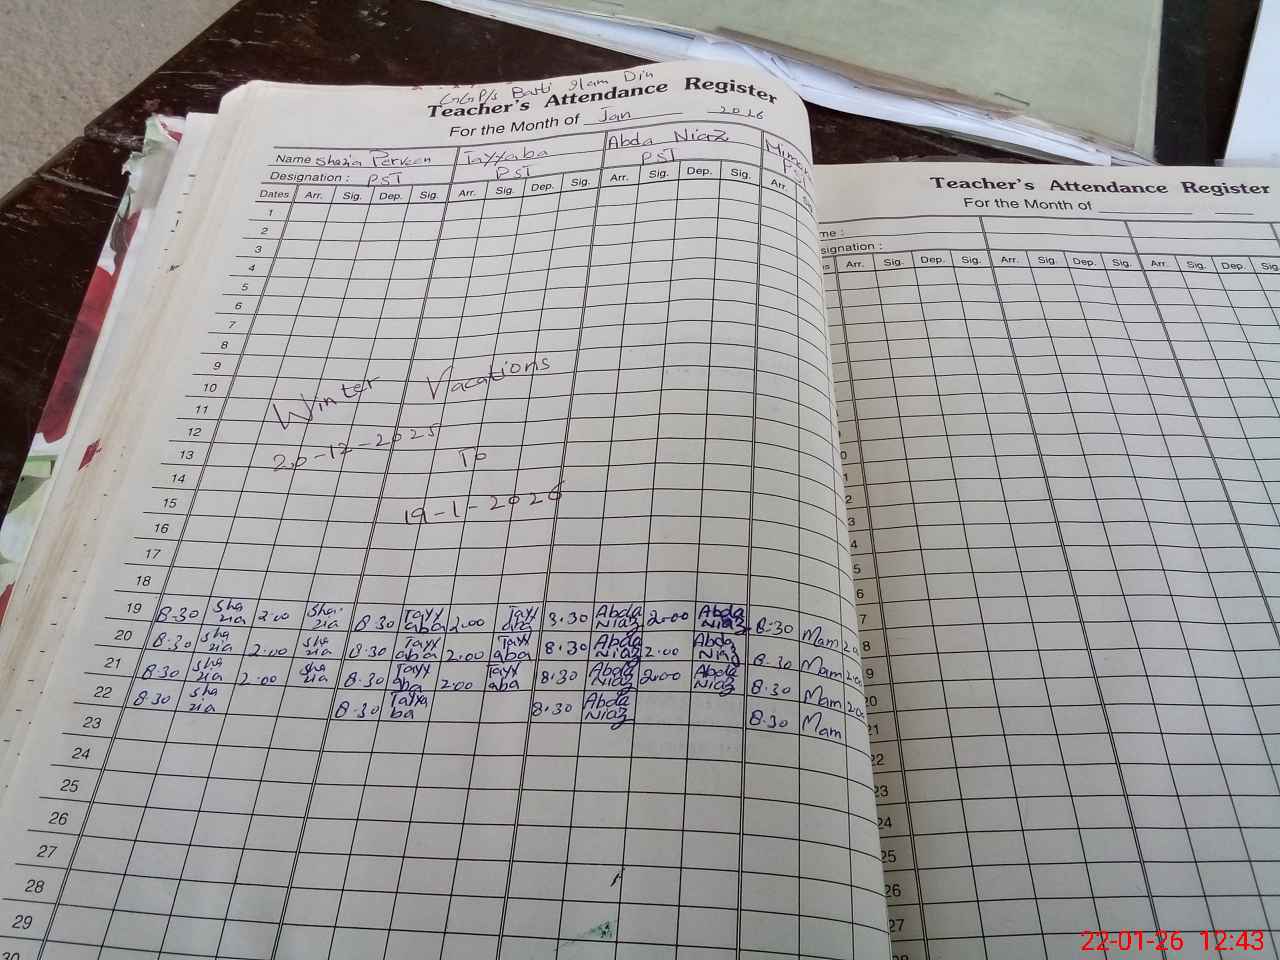 GGP/s Basti Ilam Din
Teacher's Attendance Register
For the Month of Jan 2026
Name Shazia Perveen Tayyaba Abda Niaz
Designation : PST PST PST PST
Dates Arr. Sig. Dep. Sig. Arr. Sig. Dep. Sig. Arr. Sig. Dep. Sig. Arr.
1
2
3
4
5
6
7
8
9
10
11
12
13
14
15
16
17
18
Winter Vacations
20-12-2025
To
19-1-2026
19 8.30 Sha zia 2.00 Sha zia 8.30 Tayy aba 2.00 Tayy aba 8.30 Abda Niaz 2.00 Abda Niaz 8:30 Mam 2.0
20 8.30 Sha zia 2.00 Sha zia 8.30 Tayy aba 2.00 Tayy aba 8.30 Abda Niaz 2.00 Abda Niaz 8.30 Mam 2.00
21 8.30 Sha zia 2.00 Sha zia 8.30 Tayy aba 2.00 Tayy aba 8.30 Abda Niaz 2.00 Abda Niaz 8.30 Mam 2.00
22 8.30 Sha zia 8.30 Tayya ba 8.30 Abda Niaz 8.30 Mam
23
24
25
26
27
28
29
30
Teacher's Attendance Register
For the Month of
me :
signation :
Arr. Sig. Dep. Sig. Arr. Sig. Dep. Sig. Arr. Sig. Dep. Sig.
0
1
2
3
4
5
6
7
8
9
20
21
22
23
24
25
26
27
22-01-26 12:43